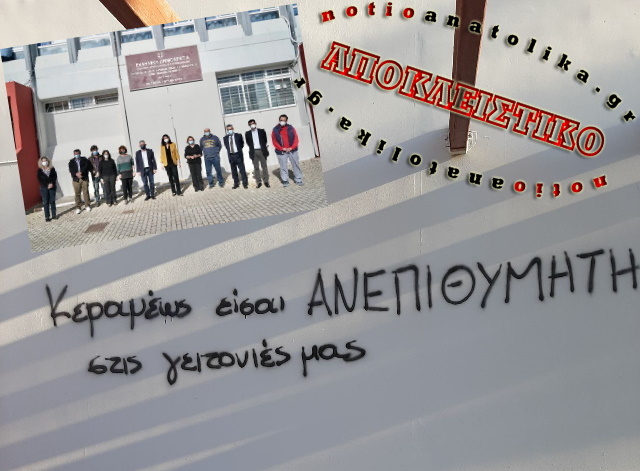 notioanatolika.gr
ΑΠΟΚΛΕΙΣΤΙΚΟ
notioanatolika.gr
ΕΛΛΗΝΙΚΗ ΔΗΜΟΚΡΑΤΙΑ
Κεραμέως είσαι ΑΝΕΠΙΘΥΜΗΤΗ
στις γειτονιές μας